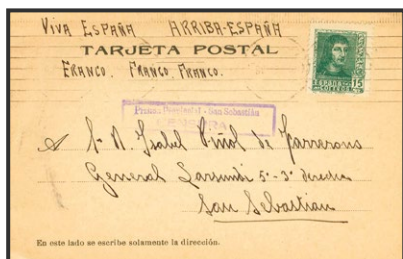 VIVA ESPAÑA ARRIBA-ESPAÑA
TARJETA POSTAL
FRANCO. FRANCO. FRANCO.
ESPAÑA
CORREOS 15
San Sebastián
CENSURA
Isabel Piñol de
General 5º-3º derecha
San Sebastian
En este lado se escribe solamente la dirección.